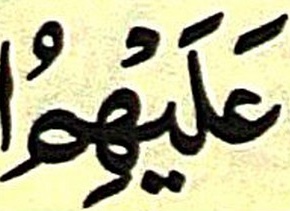 عَلَيْهِمُ ا